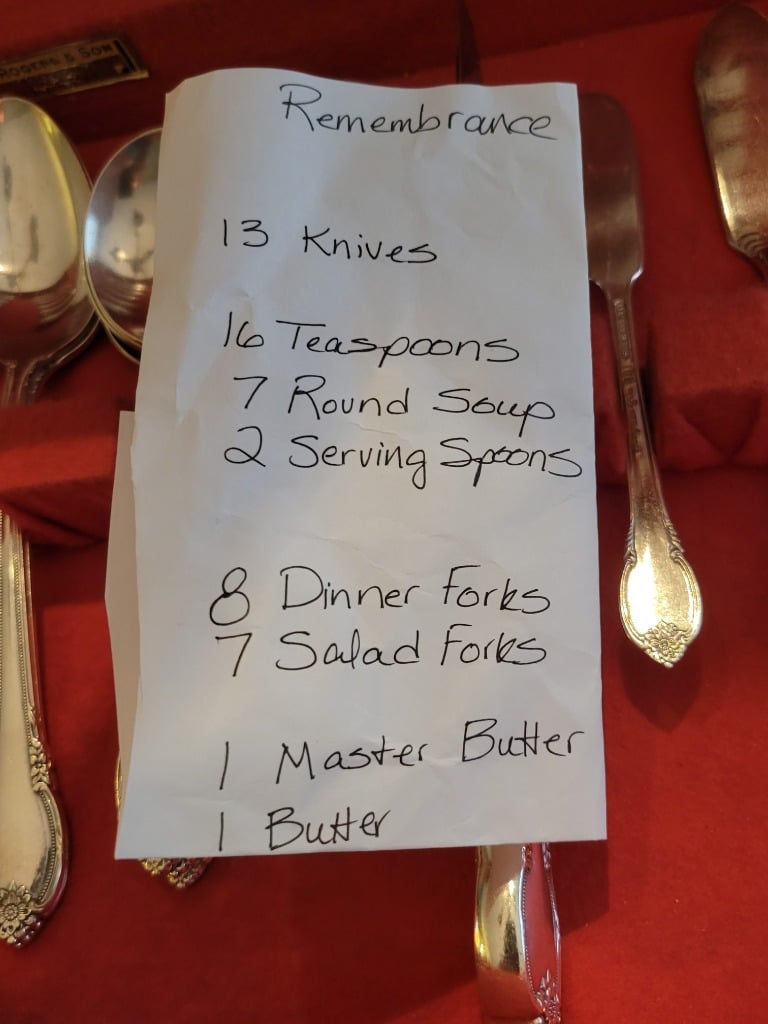 ROGERS & SON
Remembrance
13 Knives
16 Teaspoons
7 Round Soup
2 Serving Spoons
8 Dinner Forks
7 Salad Forks
1 Master Butter
1 Butter